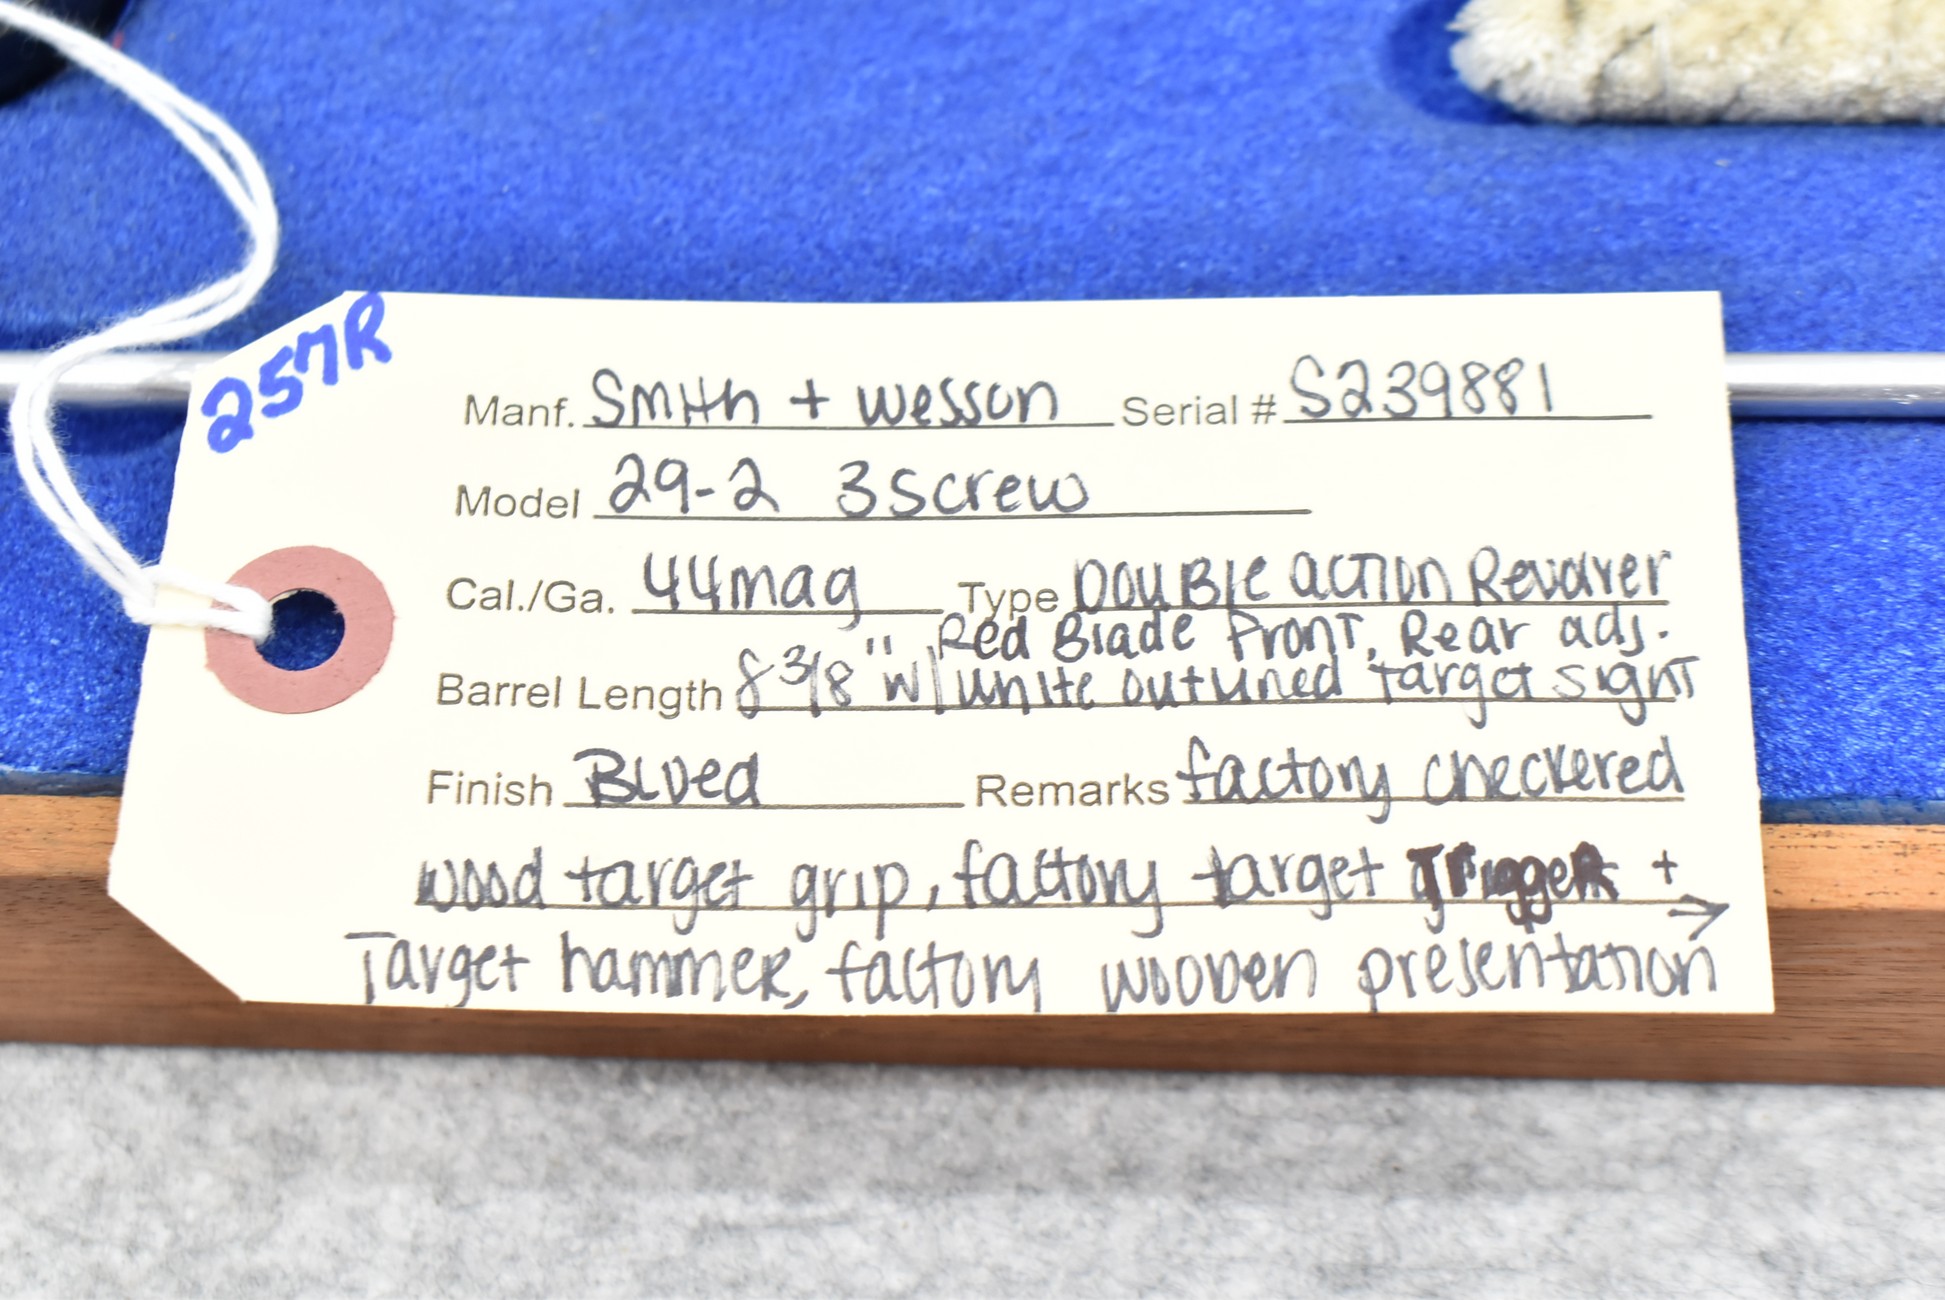 257R
Manf. Smith + Wesson Serial # S239881
Model 29-2 3 screw
Cal./Ga. 44mag Type Double action Revolver
Red Blade Front, Rear adj.
Barrel Length 8 3/8" w/ white outlined target sight
Finish Blued Remarks factory checkered
wood target grip, factory target Trigger +
Target hammer, factory wooden presentation →